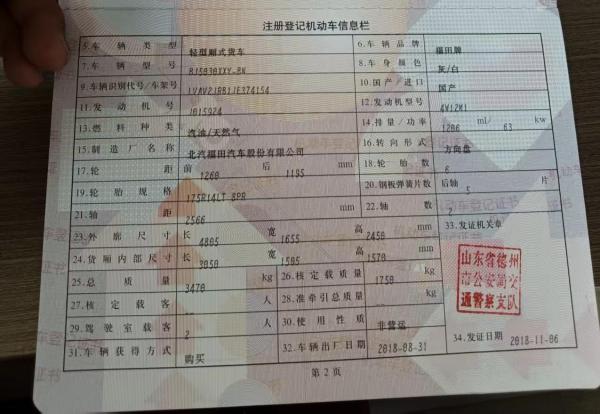 注册登记机动车信息栏
5.车辆类型 轻型厢式货车 6.车辆品牌 福田牌
7.车辆型号 BJ5030XXY-BN 8.车身颜色 灰/白
9.车辆识别代号/车架号 LVAV2JBB1JE374154 10.国产/进口 国产
11.发动机号 J015924 12.发动机型号 4W12M1
13.燃料种类 汽油/天然气 14.排量/功率 1206 ml/ 63 kw
15.制造厂名称 北汽福田汽车股份有限公司 16.转向形式 方向盘
17.轮距 前 1260 后 1195 mm 18.轮胎数 6
19.轮胎规格 175R14LT 8PR 20.钢板弹簧片数 后轴 5 片
21.轴距 2566 mm 22.轴数 2
23.外廓尺寸 长 4805 宽 1655 高 2450 mm 33.发证机关章
24.货厢内部尺寸 长 3050 宽 1505 高 1570 mm
25.总质量 3470 kg 26.核定载质量 1750 kg
27.核定载客 -- 人 28.准牵引总质量 -- kg
29.驾驶室载客 2 人 30.使用性质 非营运
31.车辆获得方式 购买 32.车辆出厂日期 2018-08-31 34.发证日期 2018-11-06
山东省德州
市公安局交
通警察支队
第2页